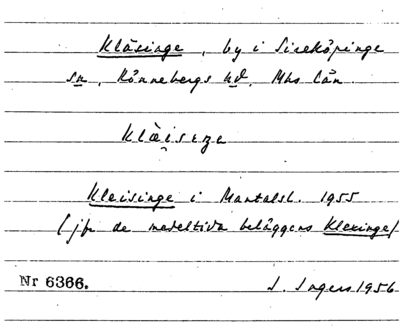 Kläsinge, by i Sireköpinge
sn, Rönnebergs hd, Mhs län
Kleisinge i Mantalsl. 1955
(jfr de medeltida beläggens Klexinge)
Nr 6366. I. Ingers 1956